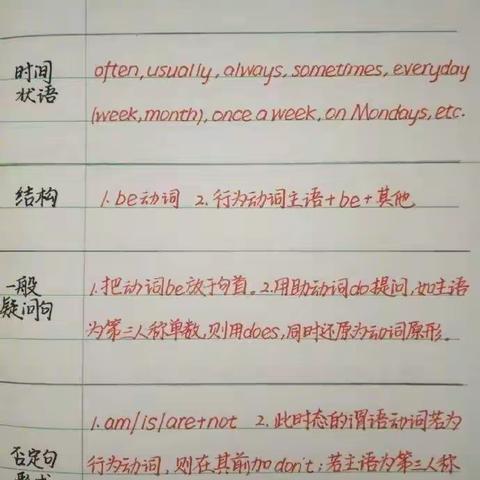 时间
状语
often, usually, always, sometimes, everyday
(week, month), once a week, on Mondays, etc.
结构
1. be动词 2. 行为动词主语+be+其他
一般
疑问句
1. 把动词be放于句首。2. 用助动词do提问, 如主语
为第三人称单数, 则用does, 同时还原为动词原形。
否定句
1. am/is/are+not 2. 此时态的谓语动词若为
行为动词, 则在其前加don't; 若主语为第三人称